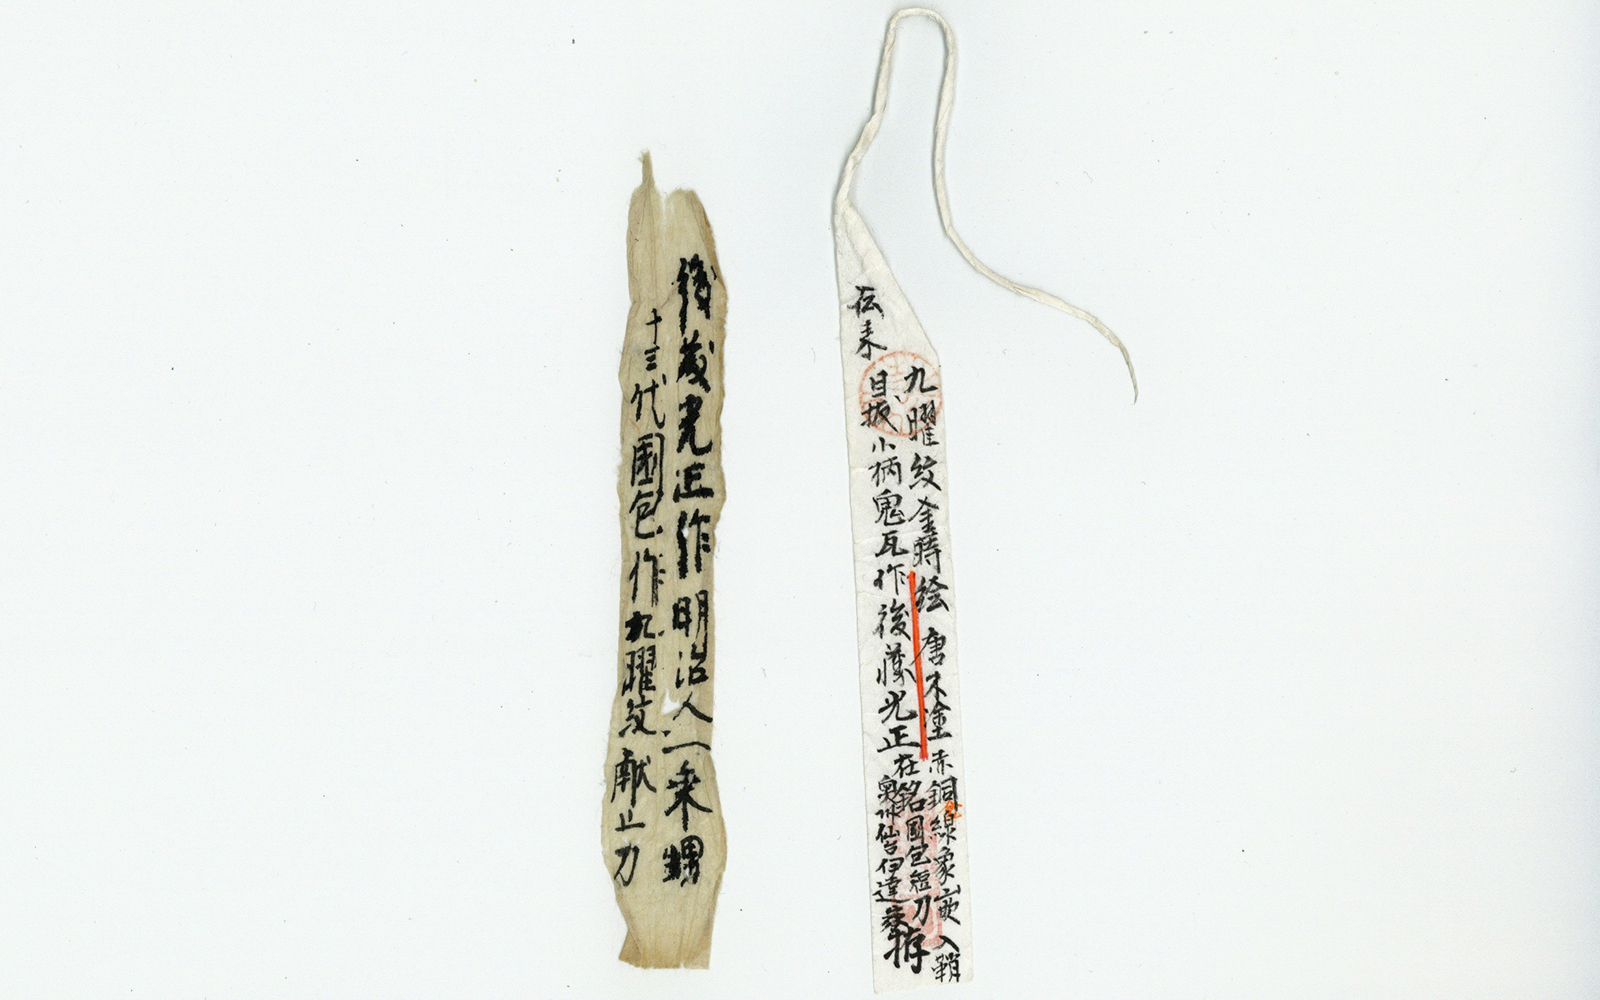 九曜紋金蒔絵 唐木塗 赤銅線象嵌入鞘
目抜小柄鬼瓦作後藤光正在銘國包短刀拵
奥州仙台伊達家
伝来
後藤光正作明治人一乗甥
十三代國包作九曜紋献上刀